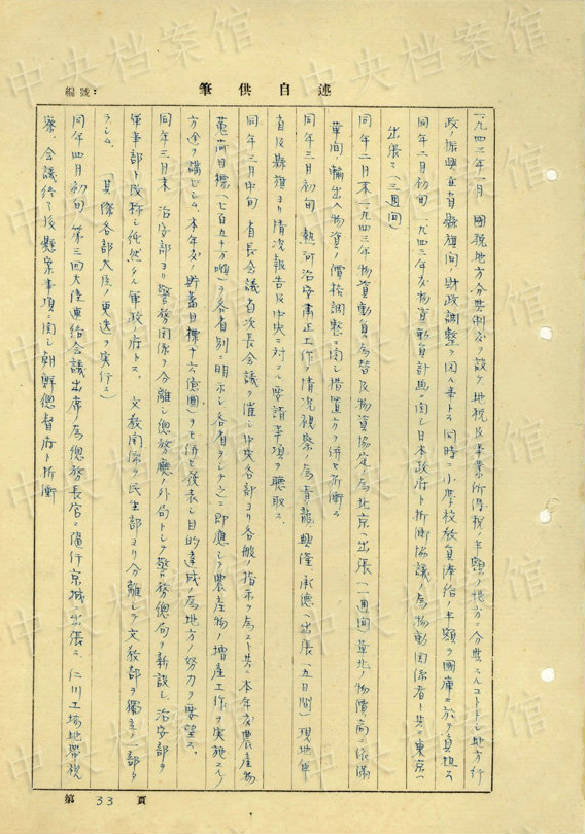 編號:
筆供自述
一九四三年一月 國稅地方分与制度ヲ設ケ地稅及事業所得稅ノ半額ヲ地方ニ分与スルコトトシ地方行
政ノ振興並各省縣旗間ノ財政調整ヲ図ルト同時ニ小學校教員俸給ノ半額ヲ國庫ニ於テ負担ス
同年二月初旬 一九四三年度物資動員計画ニ関シ日本政府ト折衝協議ノ為物動関係者ト共ニ東京ヘ
出張ス(三週間)
同年二月末 一九四三年物資動員為替及物資協定ノ為北京ヘ出張(一週間)華北ノ物價高ニ依ル滿
華間ノ輸出入物資ノ價格調整ニ関シ措置方ヲ併セ折衝ス
同年三月初旬 熱河治安肅正工作ノ情況視察ノ為青龍、興隆、承德ヘ出張(五日間)現地軍
省及縣旗ヨリ情況報告及中央ニ対スル要請事項ヲ聽取ス、
同年三月中旬 省長会議省次長会議ヲ催シ中央各部ヨリ各般ノ指示ヲ為スト共ニ本年度農産物
蒐荷目標(七百五十万噸)ヲ各省別ニ明示シ各省ヲシテ之ニ即應シテ農産物ノ增産工作ヲ実施スル
方途ヲ講ゼシム、本年度ノ貯蓄目標(十六億圓)ヲモ併セ發表シ目的達成ノ為地方ノ努力ヲ要望ス、
同年三月末 治安部ヨリ警務関係ヲ分離シ總務廳ノ外局トシテ警務總局ヲ新設シ治安部ヲ
軍事部ト改称シ純然タル軍政ノ府トス、 文教関係ヲ民生部ヨリ分離シテ文教部ヲ獨立ノ一部タ
ラシム、 (其際各部大臣ノ更迭ヲ実行ス)
同年四月初旬 第三回大陸連絡会議出席ノ為總務長官ニ隨行京城ヘ出張ス 仁川工場地帶視
察、会議終了後懸案事項ニ関シ朝鮮總督府ト折衝
第 33 頁
中央档案馆